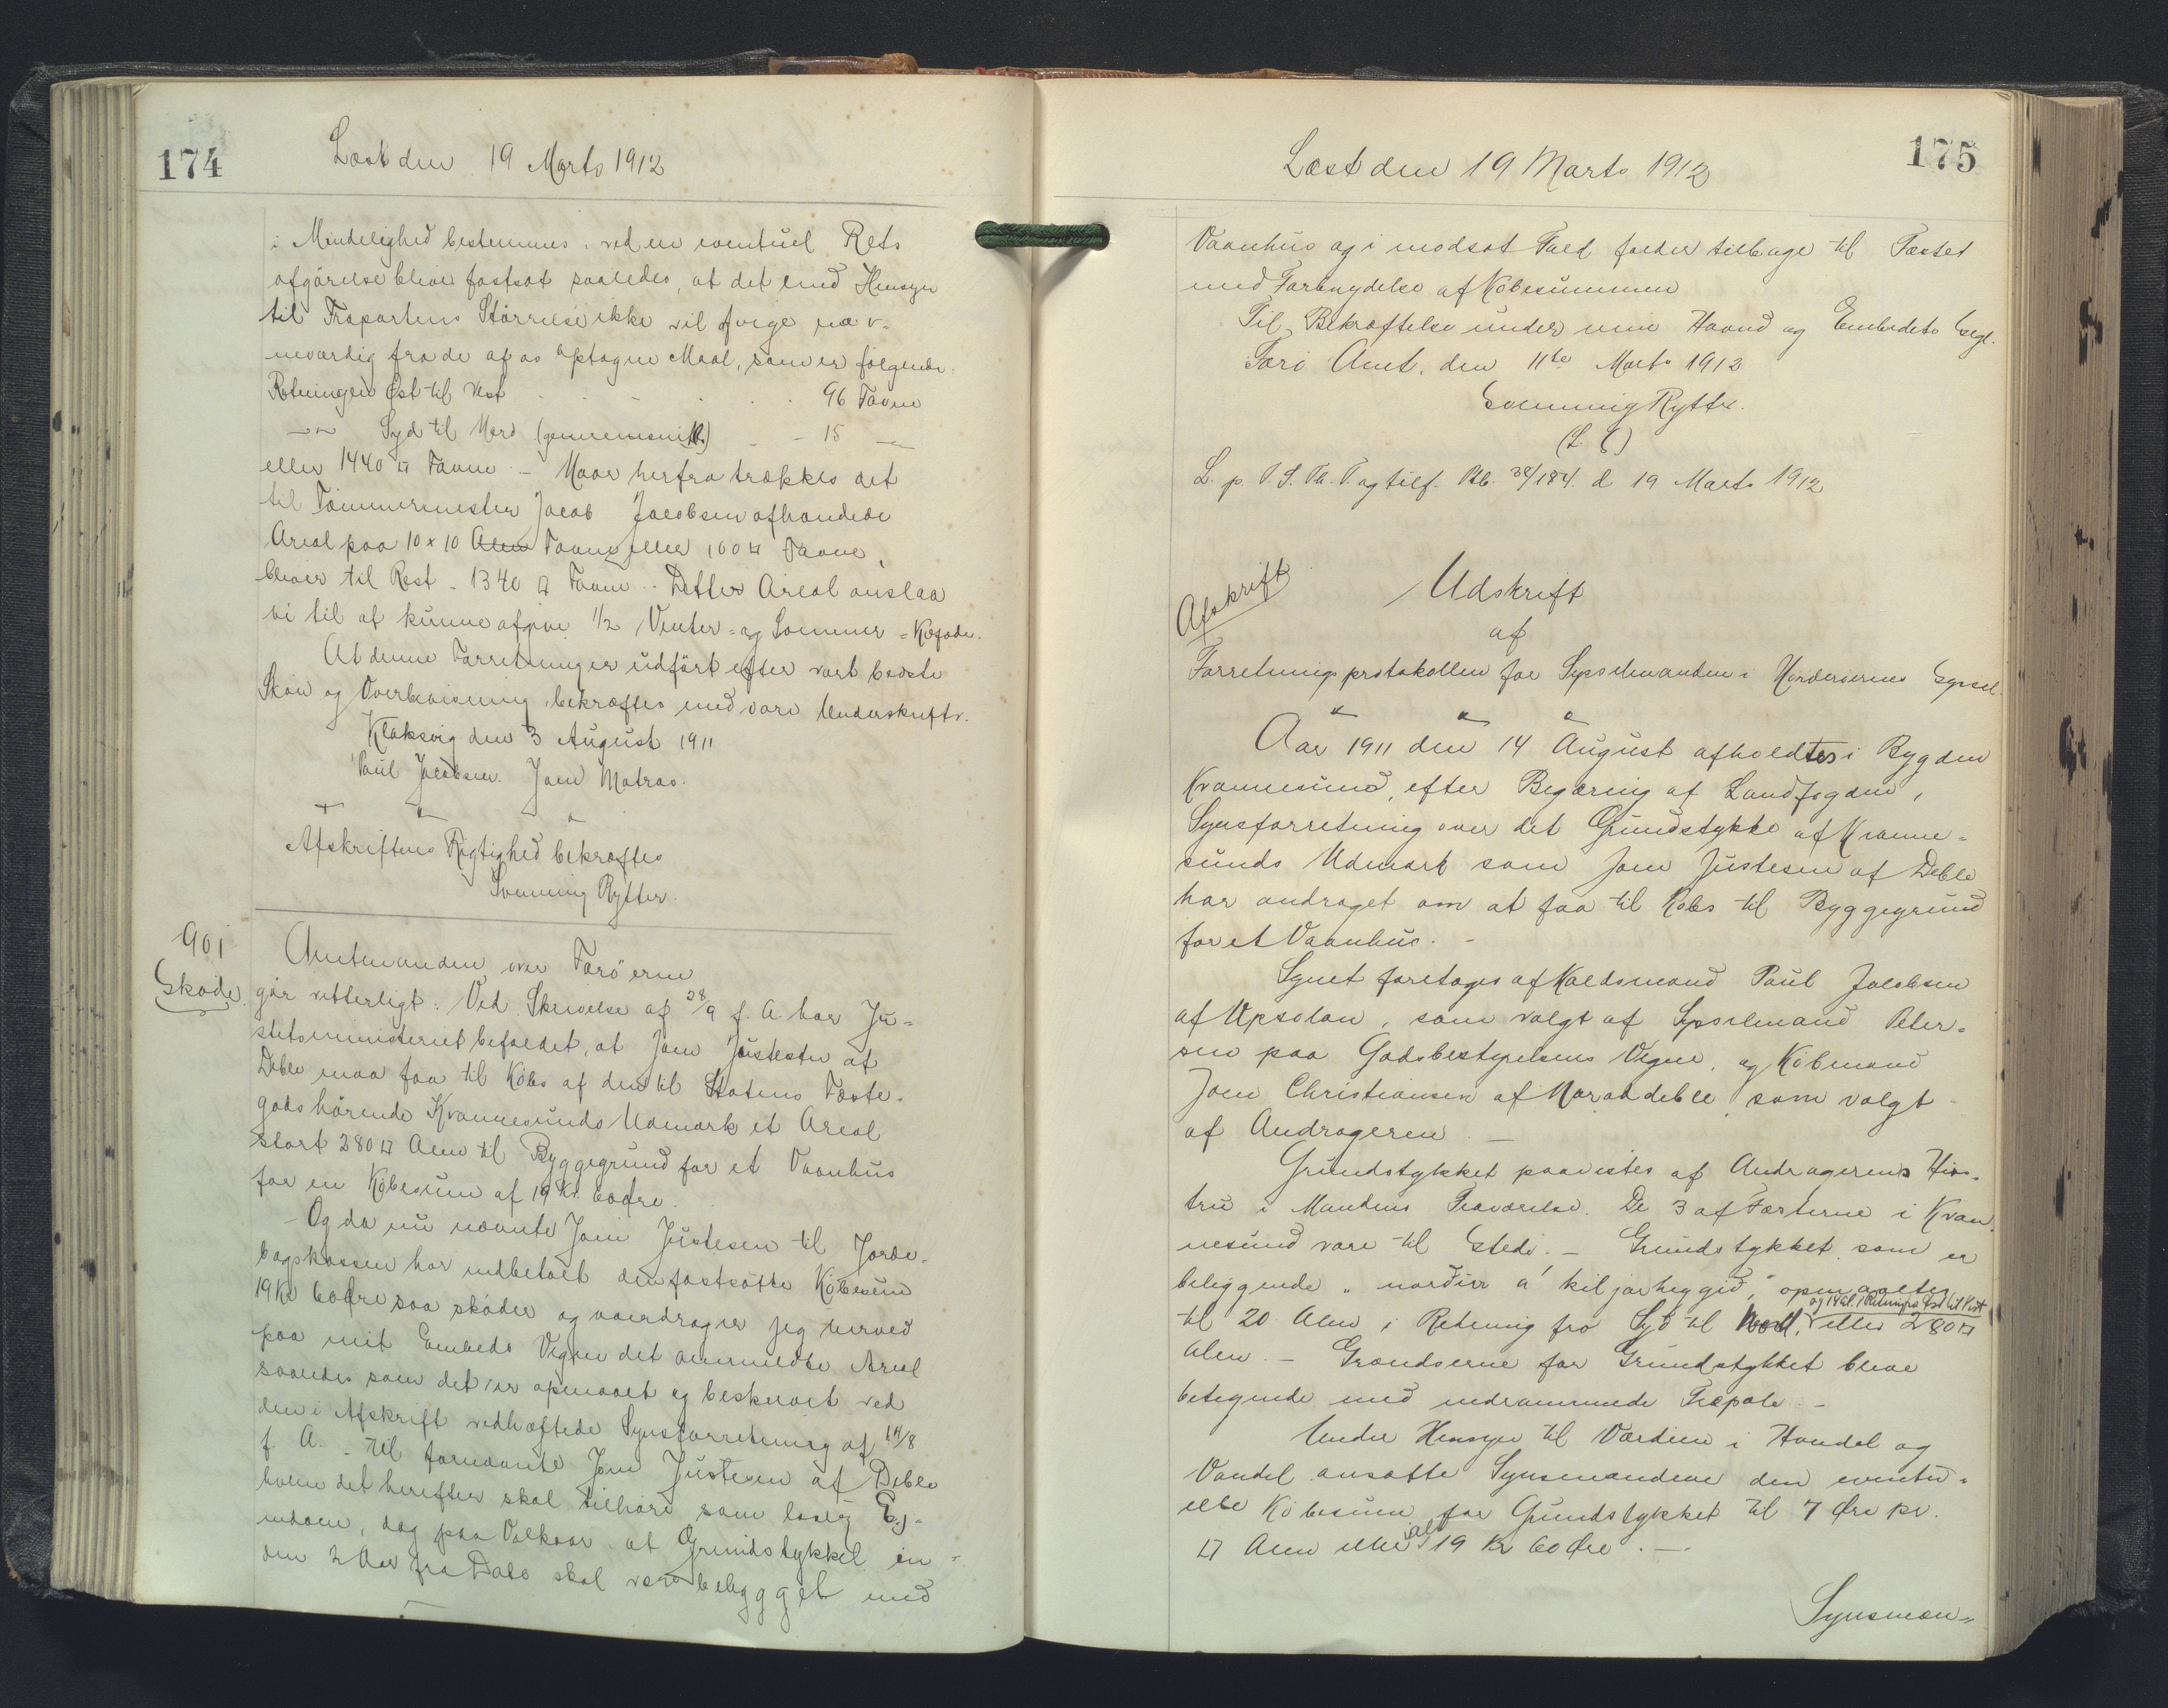 174
Læst den 19 Marts 1912
i Mindelighed bestemmes, ved en eventuel Rets
afgörelse bliver fastsat saaledes, at det med Hensyn
til Frapartens Störrelse ikke vil afvige næv-
neværdig fra de af os optagne Maal, som er fölgende:
Retningen Øst til Vest - - - - - 96 Favne
—"— Syd til Nord (gennemsnitl.) - - 15 —
eller 1440 □ Favne. - Naar herfra trækkes det
til Tömmermester Jacob Jacobsen afhændede
Areal paa 10 x 10 Alen Favne eller 100 □ Favne,
bliver til Rest - 1340 □ Favne. - Dette Areal anslaa
vi til at kunne afgive 1/2 Vinter- og Sommer-Kofode.
At denne Forretning er udfört efter vort bedste
Skön og Overbevisning, bekræftes med vore Underskrifter.
Klaksvig den 3 August 1911
Poul Jacobsen. Joen Matras.
Afskriftens Rigtighed bekræftes
Svenning Rytter.
901
Skøde.
Amtmanden over Færöerne
gör vitterligt: Ved Skrivelse af 28/9 f. A. har Ju-
stitsministeriet befalet, at Joen Justesen af
Deble maa faa til Köbs af den til Statens Fæste-
gods hörende Kvannesunds Udmark et Areal
stort 280 □ Alen til Byggegrund for et Vaanhus
for en Köbesum af 19 Kr. 60 Øre.
- Og da nu nævnte Joen Justesen til Jorde-
bogskassen har indbetalt den fastsatte Köbesum
19 Kr 60 Øre saa sköder og overdrager jeg herved
paa mit Embeds Vegne det anmeldte Areal
saaledes som det er opmaalt og beskrevet ved
den i Afskrift vedhæftede Synsforretning af 14/8
f. A. - til fornævnte Joen Justesen af Deble
hvem det herefter skal tilhöre som lovlig Ej-
endom, dog paa Vilkaar at Grundstykket in-
den 2 Aar fra Dato skal være bebygget med
175
Læst den 19 Marts 1912
Vaanhus og i modsat Fald falder tilbage til Fæstet
med Fortrydelse af Köbesummen
Til Bekræftelse under min Haand og Embedets Segl.
Færö Amt, den 11te Marts 1912
Svenning Rytter.
(L. S.)
L. p. V. S. Th. P. og tilf. Ptb. 38/184. d 19 Marts 1912
Afskrift
Udskrift
af
Forretningsprotokollen for Sysselmanden i Norderöernes Syssel.
Aar 1911 den 14 August afholdtes i Bygden
Kvannesund, efter Begæring af Landfogden,
Synsforretning over det Grundstykke af Kvanne-
sunds Udmark som Joen Justesen af Deble
har andraget om at faa til Köbs til Byggegrund
for et Vaanhus. -
Synet foretages af Kaldsmand Poul Jacobsen
af Upsolan, som valgt af Sysselmand Peter-
sen paa Godsbestyrelsens Vegne, og Köbmand
Joen Christiansen af Norddeble som valgt
af Andrageren. —
Grundstykket paavistes af Andragerens Hus-
tru i Mandens Fraværelse. De 3 af Fæsterne i Kvan
nesund vare til Stede. - Grundstykket som er
beliggende „nordur á kiljarheyggi", opmaaltes
til 20 Alen i Retning fra Syd til Nord, og 14 Al. i Retning fra Øst til Vest eller 280 □
Alen. - Grændserne for Grundstykket bleve
betegnede med nedrammede Træpæle. -
Under Hensyn til Værdien i Handel og
Vandel ansatte Synsmændene den eventu-
elle Köbesum for Grundstykket til 7 Øre pr.
□ Alen eller ialt 19 Kr 60 Øre. —
Synsmæn-